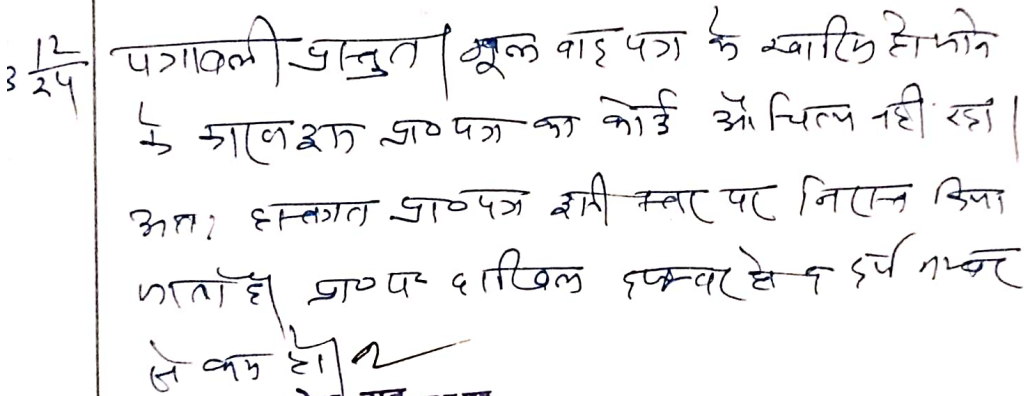 3 12/24 पत्रावली प्रस्तुत। मूल वाद पत्र के खारिज हो जाने
के कारण इस प्रा० पत्र का कोई औचित्य नहीं रहा।
अतः हस्तगत प्रा० पत्र इसी स्तर पर निरस्त किया
जाता है। प्रा० पत्र दाखिल दफ्तर हो व दर्ज नम्बर
से कम हो।